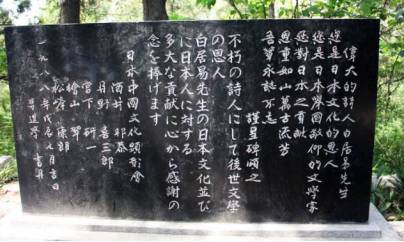 偉大的詩人白居易先生
您是日本文化的恩人
您是日本舉國敬仰的文學家
您對日本之貢献
恩重如山萬古流芳
吾輩永誌不忘
謹呈碑頌之
不朽の詩人にして後世文學
の恩人
白居易先生の日本文化並び
に日本人に対する
多大な貢献に心から感謝の
念を捧げます
日本中國文化顕彰會
酒井
月野 喜三郎
宮下 研一
檜山
松実 康朗
一九八八年戊辰七月吉日